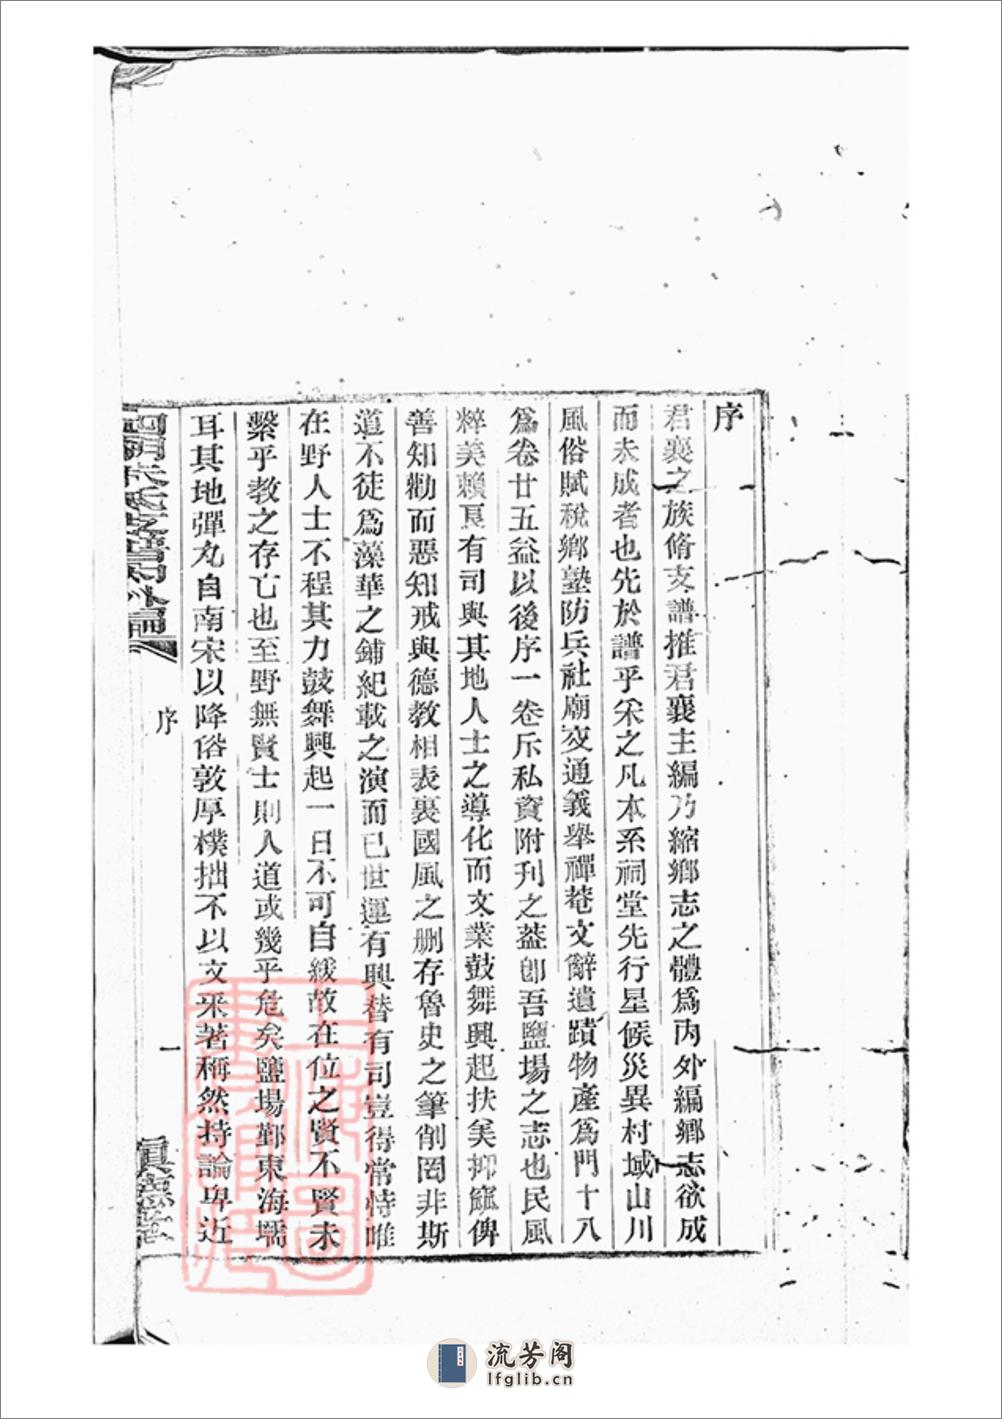 序
君襄之族脩支譜推君襄主編乃縮鄉志之體爲內外編鄉志欲成
而未成者也先於譜乎釆之凡本系祠堂先行星候災異村域山川
風俗賦稅鄉塾防兵社廟交通義舉禪菴文辭遺蹟物產爲門十八
爲卷廿五益以後序一卷斥私資附刊之葢卽吾鹽場之志也民風
粹美賴良有司與其地人士之導化而文業鼓舞興起扶美抑窳俾
善知勸而惡知戒與德教相表裏國風之刪存魯史之筆削罔非斯
道不徒爲藻華之鋪紀載之演而已世運有興替有司豈得常恃唯
在野人士不程其力鼓舞興起一日不可自緩故在位之賢不賢未
繫乎教之存亡也至野無賢士則人道或幾乎危矣鹽場鄞東海壖
耳其地彈丸自南宋以降俗敦厚樸拙不以文釆著稱然持論卑近
朱氏支譜內外編
序
一
上海圖書館
流芳阁
lfglib.cn